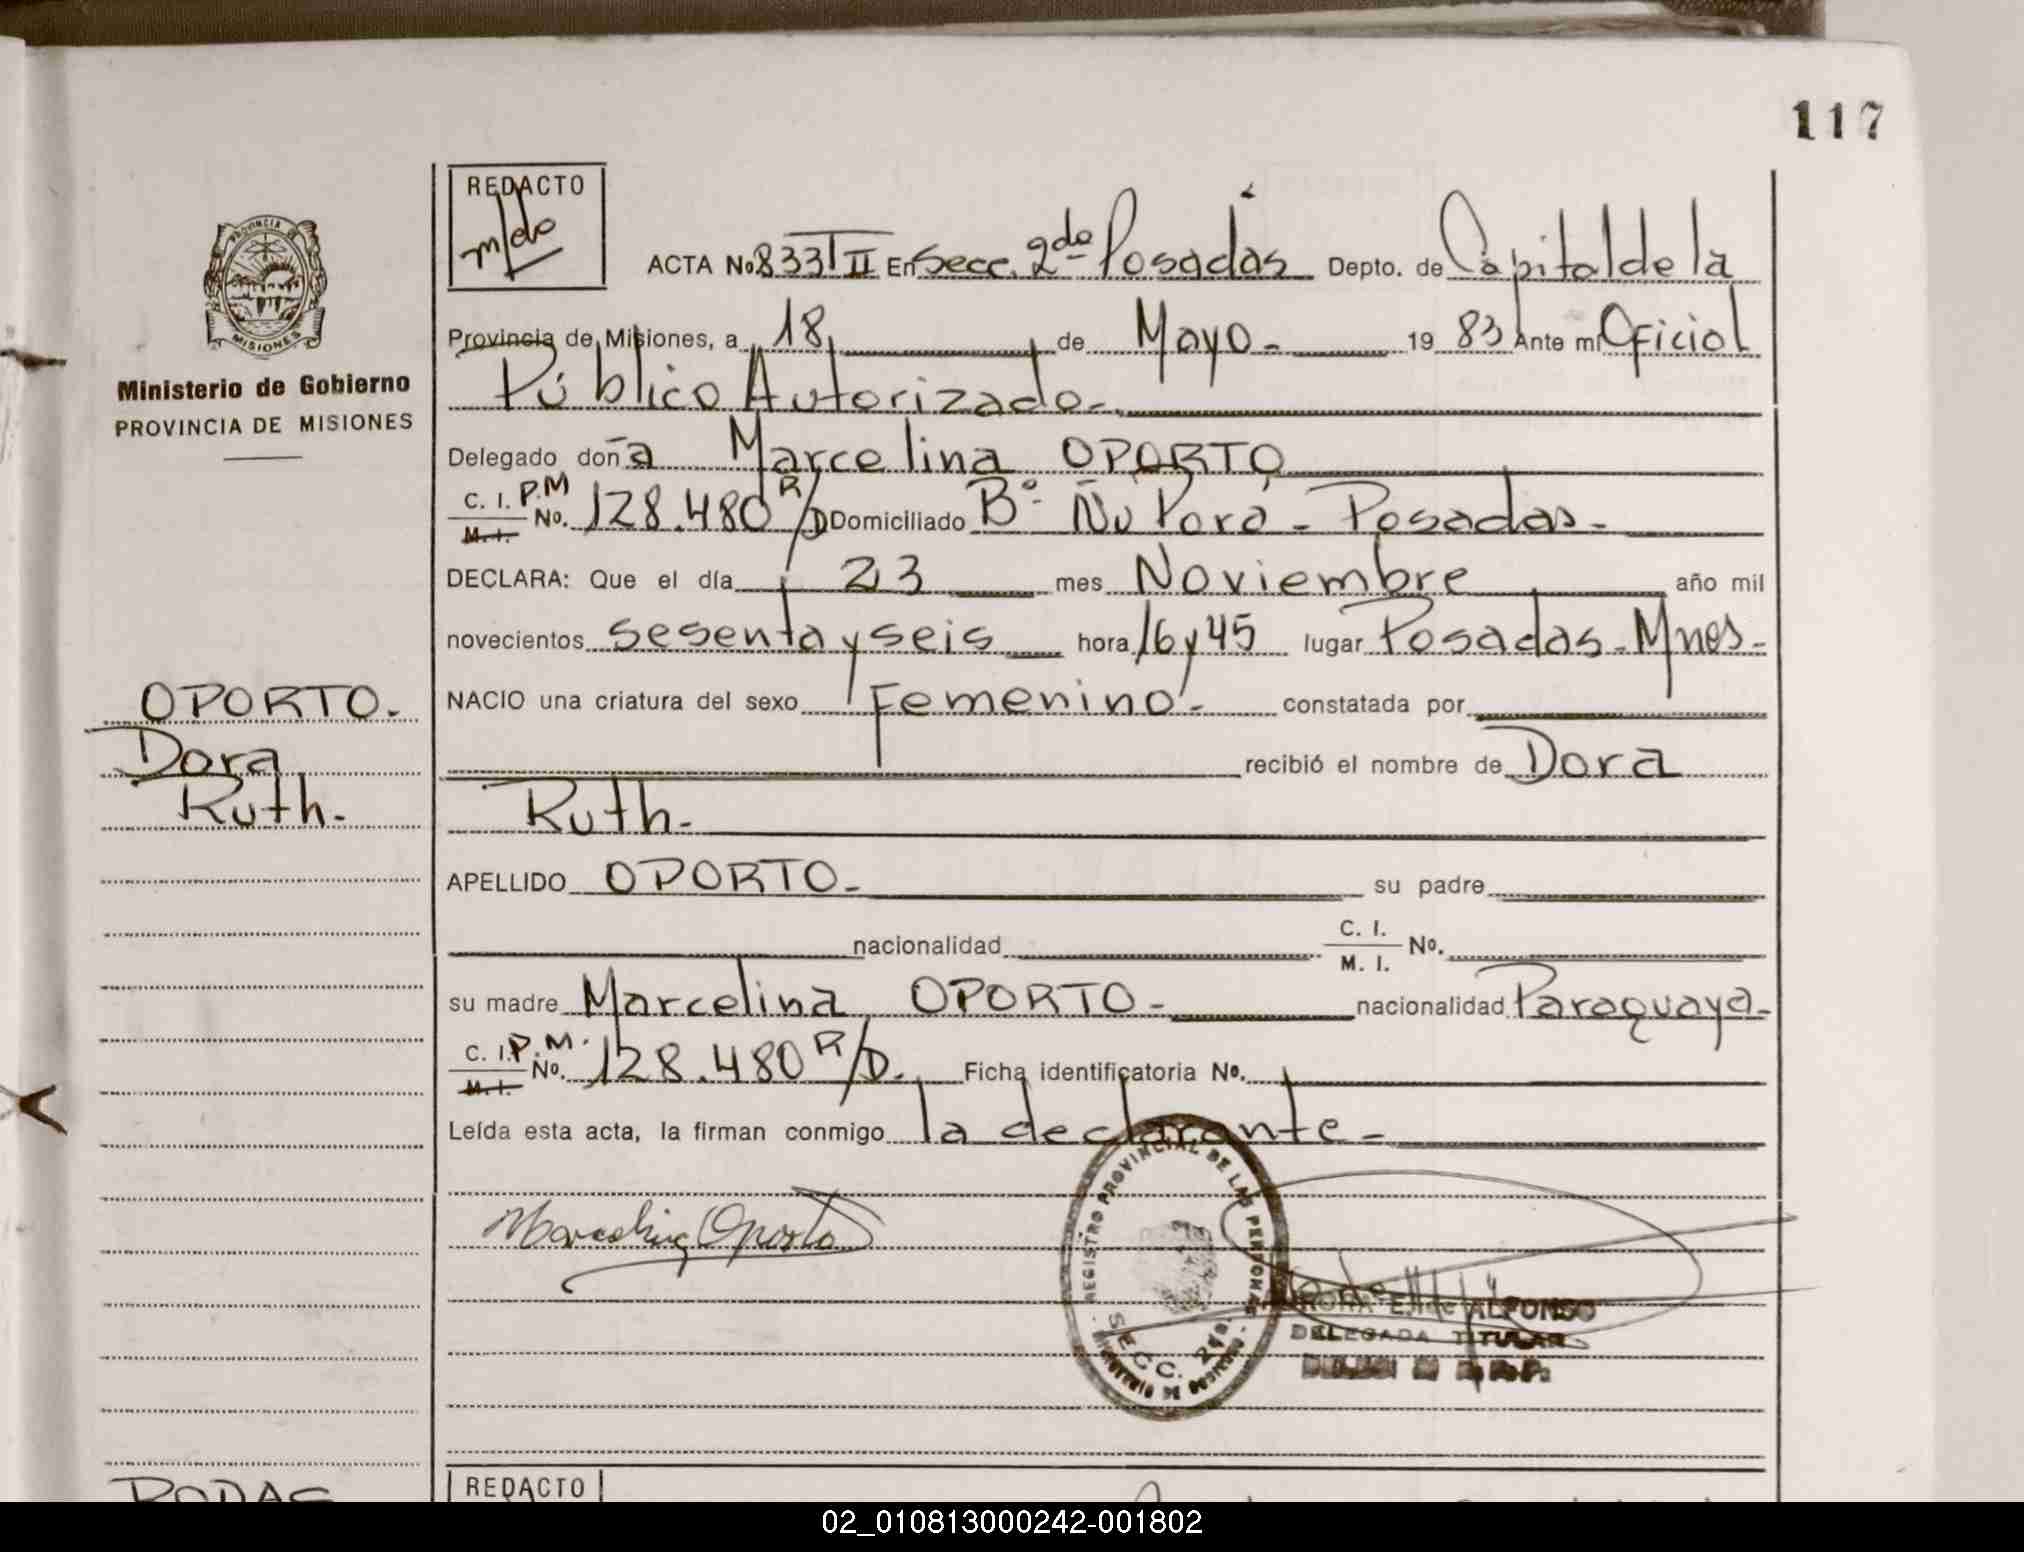 117
REDACTO
ACTA No. 833 T II En Secc. 2da Posadas Depto. de Capital de la
Provincia de Misiones, a 18 de Mayo - 19 83 Ante mi Oficial
Público Autorizado -
Delegado doña Marcelina OPORTO
C. I. P.M
M. I. No. 128.480 R/D Domiciliado Bº Ñu Porá - Posadas -
DECLARA: Que el día 23 mes Noviembre año mil
novecientos sesenta y seis hora 16 y 45 lugar Posadas - Mnes -
NACIO una criatura del sexo Femenino - constatada por
recibió el nombre de Dora
Ruth -
APELLIDO OPORTO - su padre
nacionalidad C. I.
M. I. No.
su madre Marcelina OPORTO - nacionalidad Paraguaya -
C. I. P.M.
M. I. No. 128.480 R/D. Ficha identificatoria No.
Leída esta acta, la firman conmigo la declarante -
Marcelina Oporto
REGISTRO PROVINCIAL DE LAS PERSONAS
SECC. 2da.
MINISTERIO DE GOBIERNO
ALFONSO
DELEGADA TITULAR
PROVINCIA DE
MISIONES
Ministerio de Gobierno
PROVINCIA DE MISIONES
OPORTO -
Dora
Ruth -
RODAS
REDACTO
02_010813000242-001802